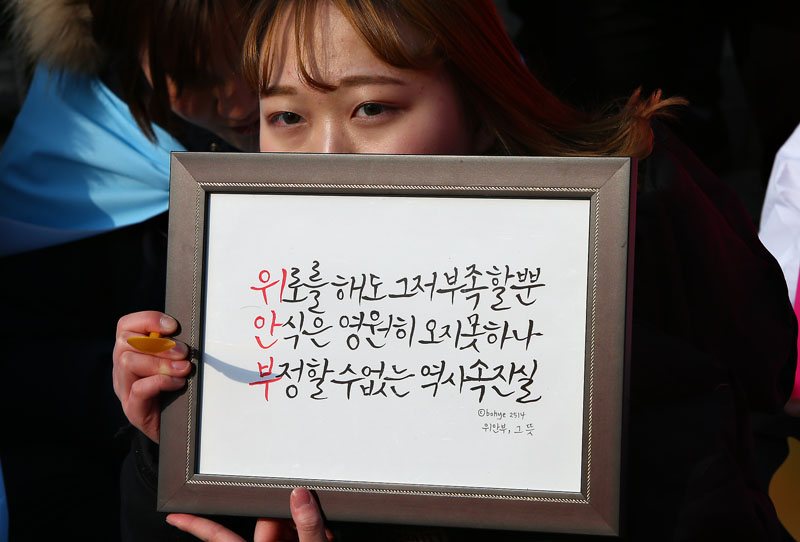 위로를 해도 그저 부족할뿐
안식은 영원히 오지못하나
부정할 수없는 역사속진실
©bohye 2514
위안부, 그 뜻